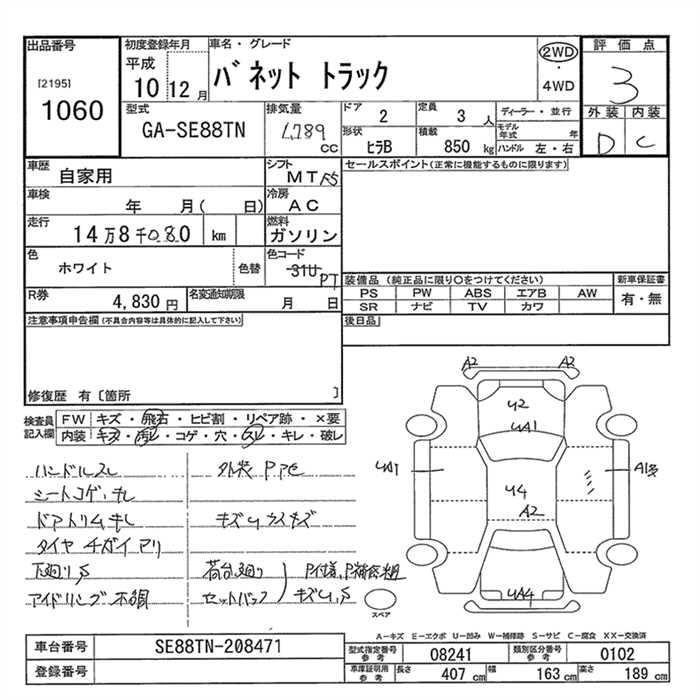 出品番号 初度登録年月 車名・グレード 2WD 評価点
[2195] 平成 バネット トラック ・ 3
1060 10 12月 4WD
型式 排気量 ドア 2 定員 3人 ディーラー・並行 外装 内装
GA-SE88TN 1,789 cc 形状 ヒラB 積載 850kg モデル年式 年 D C
ハンドル 左・右
車歴 自家用 シフト MT F5 セールスポイント(正常に機能するものに限ります)
車検 年 月( 日) 冷房 AC
走行 14万8千080 km 燃料 ガソリン
色 ホワイト 色替 色コード 31U PT
装備品 (純正品に限り○をつけてください) 新車保証書
R券 4,830円 名変通知期限 月 日 PS PW ABS エアB AW 有・無
SR ナビ TV カワ
注意事項申告欄(不具合内容等は具体的に記入して下さい) 後日品
修復歴 有〔箇所 〕
検査員記入欄 FW キズ・飛石・ヒビ割・リペア跡・×要
内装 キズ・汚レ・コゲ・穴・スレ・キレ・破レ
ハンドルスレ 外装 Pアセ
シートコゲ、キレ
ドアトリムキレ キズUカスキズ
タイヤ チガイ アリ
下廻りS 荷台廻り P仕様、P補修粗
アイドリング不調 セットバック キズU,S
A2 A2
U2
UA1
UA1 A13
U4
A2
UA4
スペア
A―キズ E―エクボ U―凹み W―補修跡 S―サビ C―腐食 XX―交換済
車台番号 SE88TN-208471 型式指定番号 参考 08241 類別区分番号 参考 0102
登録番号 車庫証明用 参考 長さ 407cm 幅 163cm 高さ 189cm